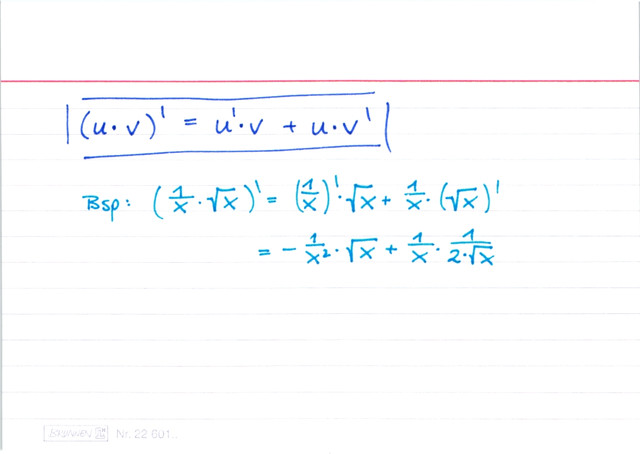 (u·v)' = u'·v + u·v'
Bsp: (1/x · √x)' = (1/x)' · √x + 1/x · (√x)'
= - 1/x² · √x + 1/x · 1/(2·√x)
Nr. 22 601..